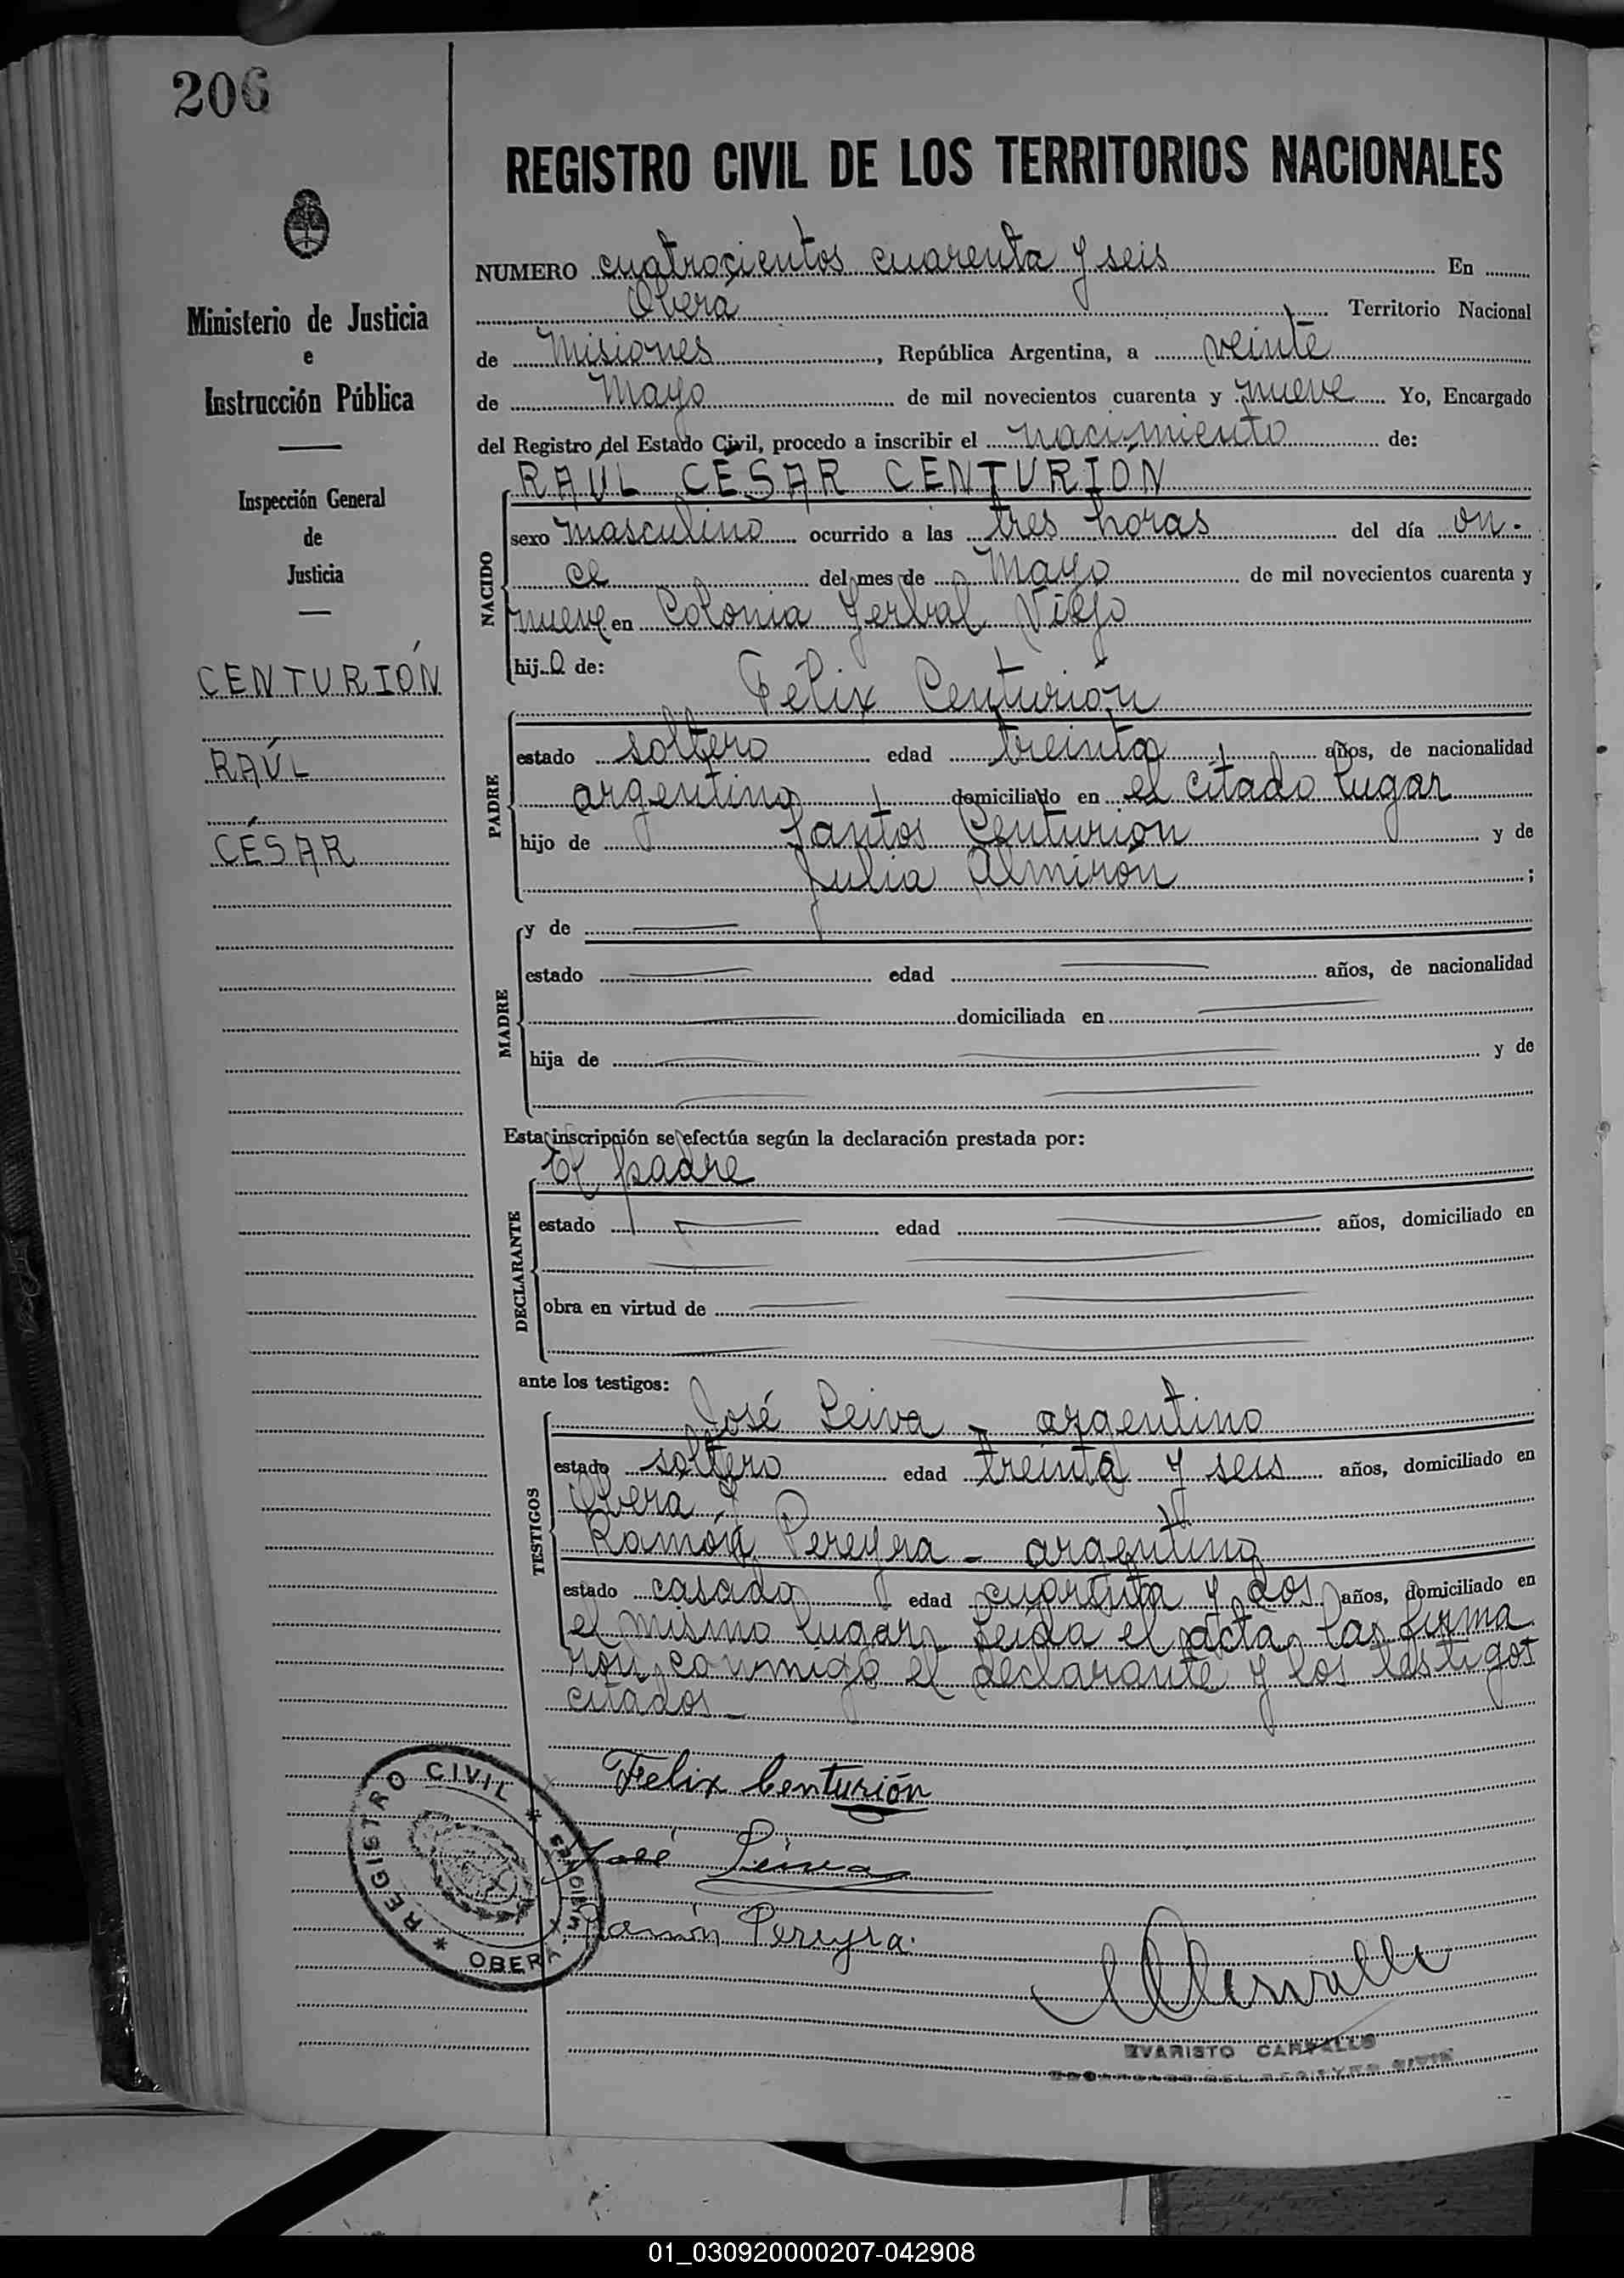 206
REGISTRO CIVIL DE LOS TERRITORIOS NACIONALES
Ministerio de Justicia
e
Instrucción Pública
Inspección General
de
Justicia
CENTURIÓN
RAÚL
CÉSAR
NUMERO cuatrocientos cuarenta y seis En
Oberá Territorio Nacional
de Misiones, República Argentina, a veinte
de Mayo de mil novecientos cuarenta y nueve Yo, Encargado
del Registro del Estado Civil, procedo a inscribir el nacimiento de:
RAÚL CÉSAR CENTURIÓN
NACIDO
sexo masculino ocurrido a las tres horas del día on-
ce del mes de Mayo de mil novecientos cuarenta y
nueve en Colonia Yerbal Viejo
hijo de:
Félix Centurión
PADRE
estado soltero edad treinta años, de nacionalidad
argentino domiciliado en el citado lugar
hijo de Santos Centurión y de
Julia Almirón;
MADRE
y de
estado edad años, de nacionalidad
domiciliada en
hija de y de
Esta inscripción se efectúa según la declaración prestada por:
El padre
DECLARANTE
estado edad años, domiciliado en
obra en virtud de
ante los testigos:
José Leiva - argentino
TESTIGOS
estado soltero edad treinta y seis años, domiciliado en
Oberá y
Ramón Pereyra - argentino
estado casado edad cuarenta y dos años, domiciliado en
el mismo lugar. Leída el acta, las firma
ron conmigo el declarante y los testigos
citados -
Felix Centurión
José Leiva
Ramón Pereyra.
* REGISTRO CIVIL * MISIONES
OBERÁ
EVARISTO CARVALLO
ENCARGADO DEL REGISTRO CIVIL
01_030920000207-042908